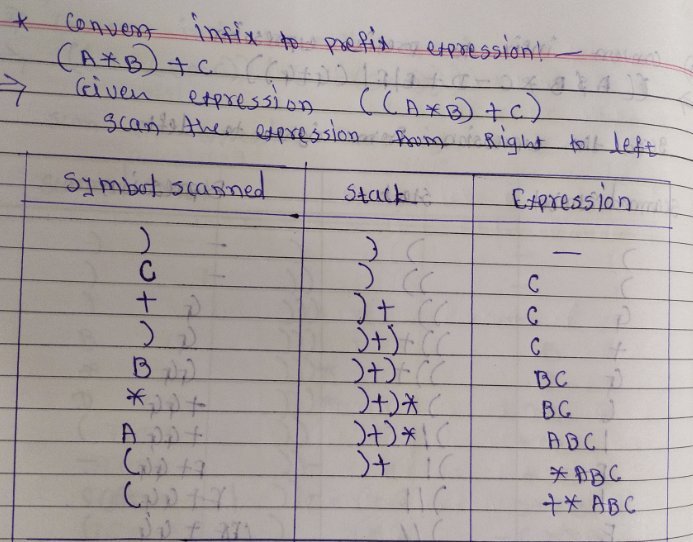 * Convert infix to prefix expression! —
(A*B) + C
⇒ Given expression ((A*B) + C)
scan the expression from Right to left
Symbol scanned Stack Expression
) ) —
C ) C
+ )+ C
) )+) C
B )+) BC
* )+)* BC
A )+)* ABC
( )+ *ABC
( +*ABC